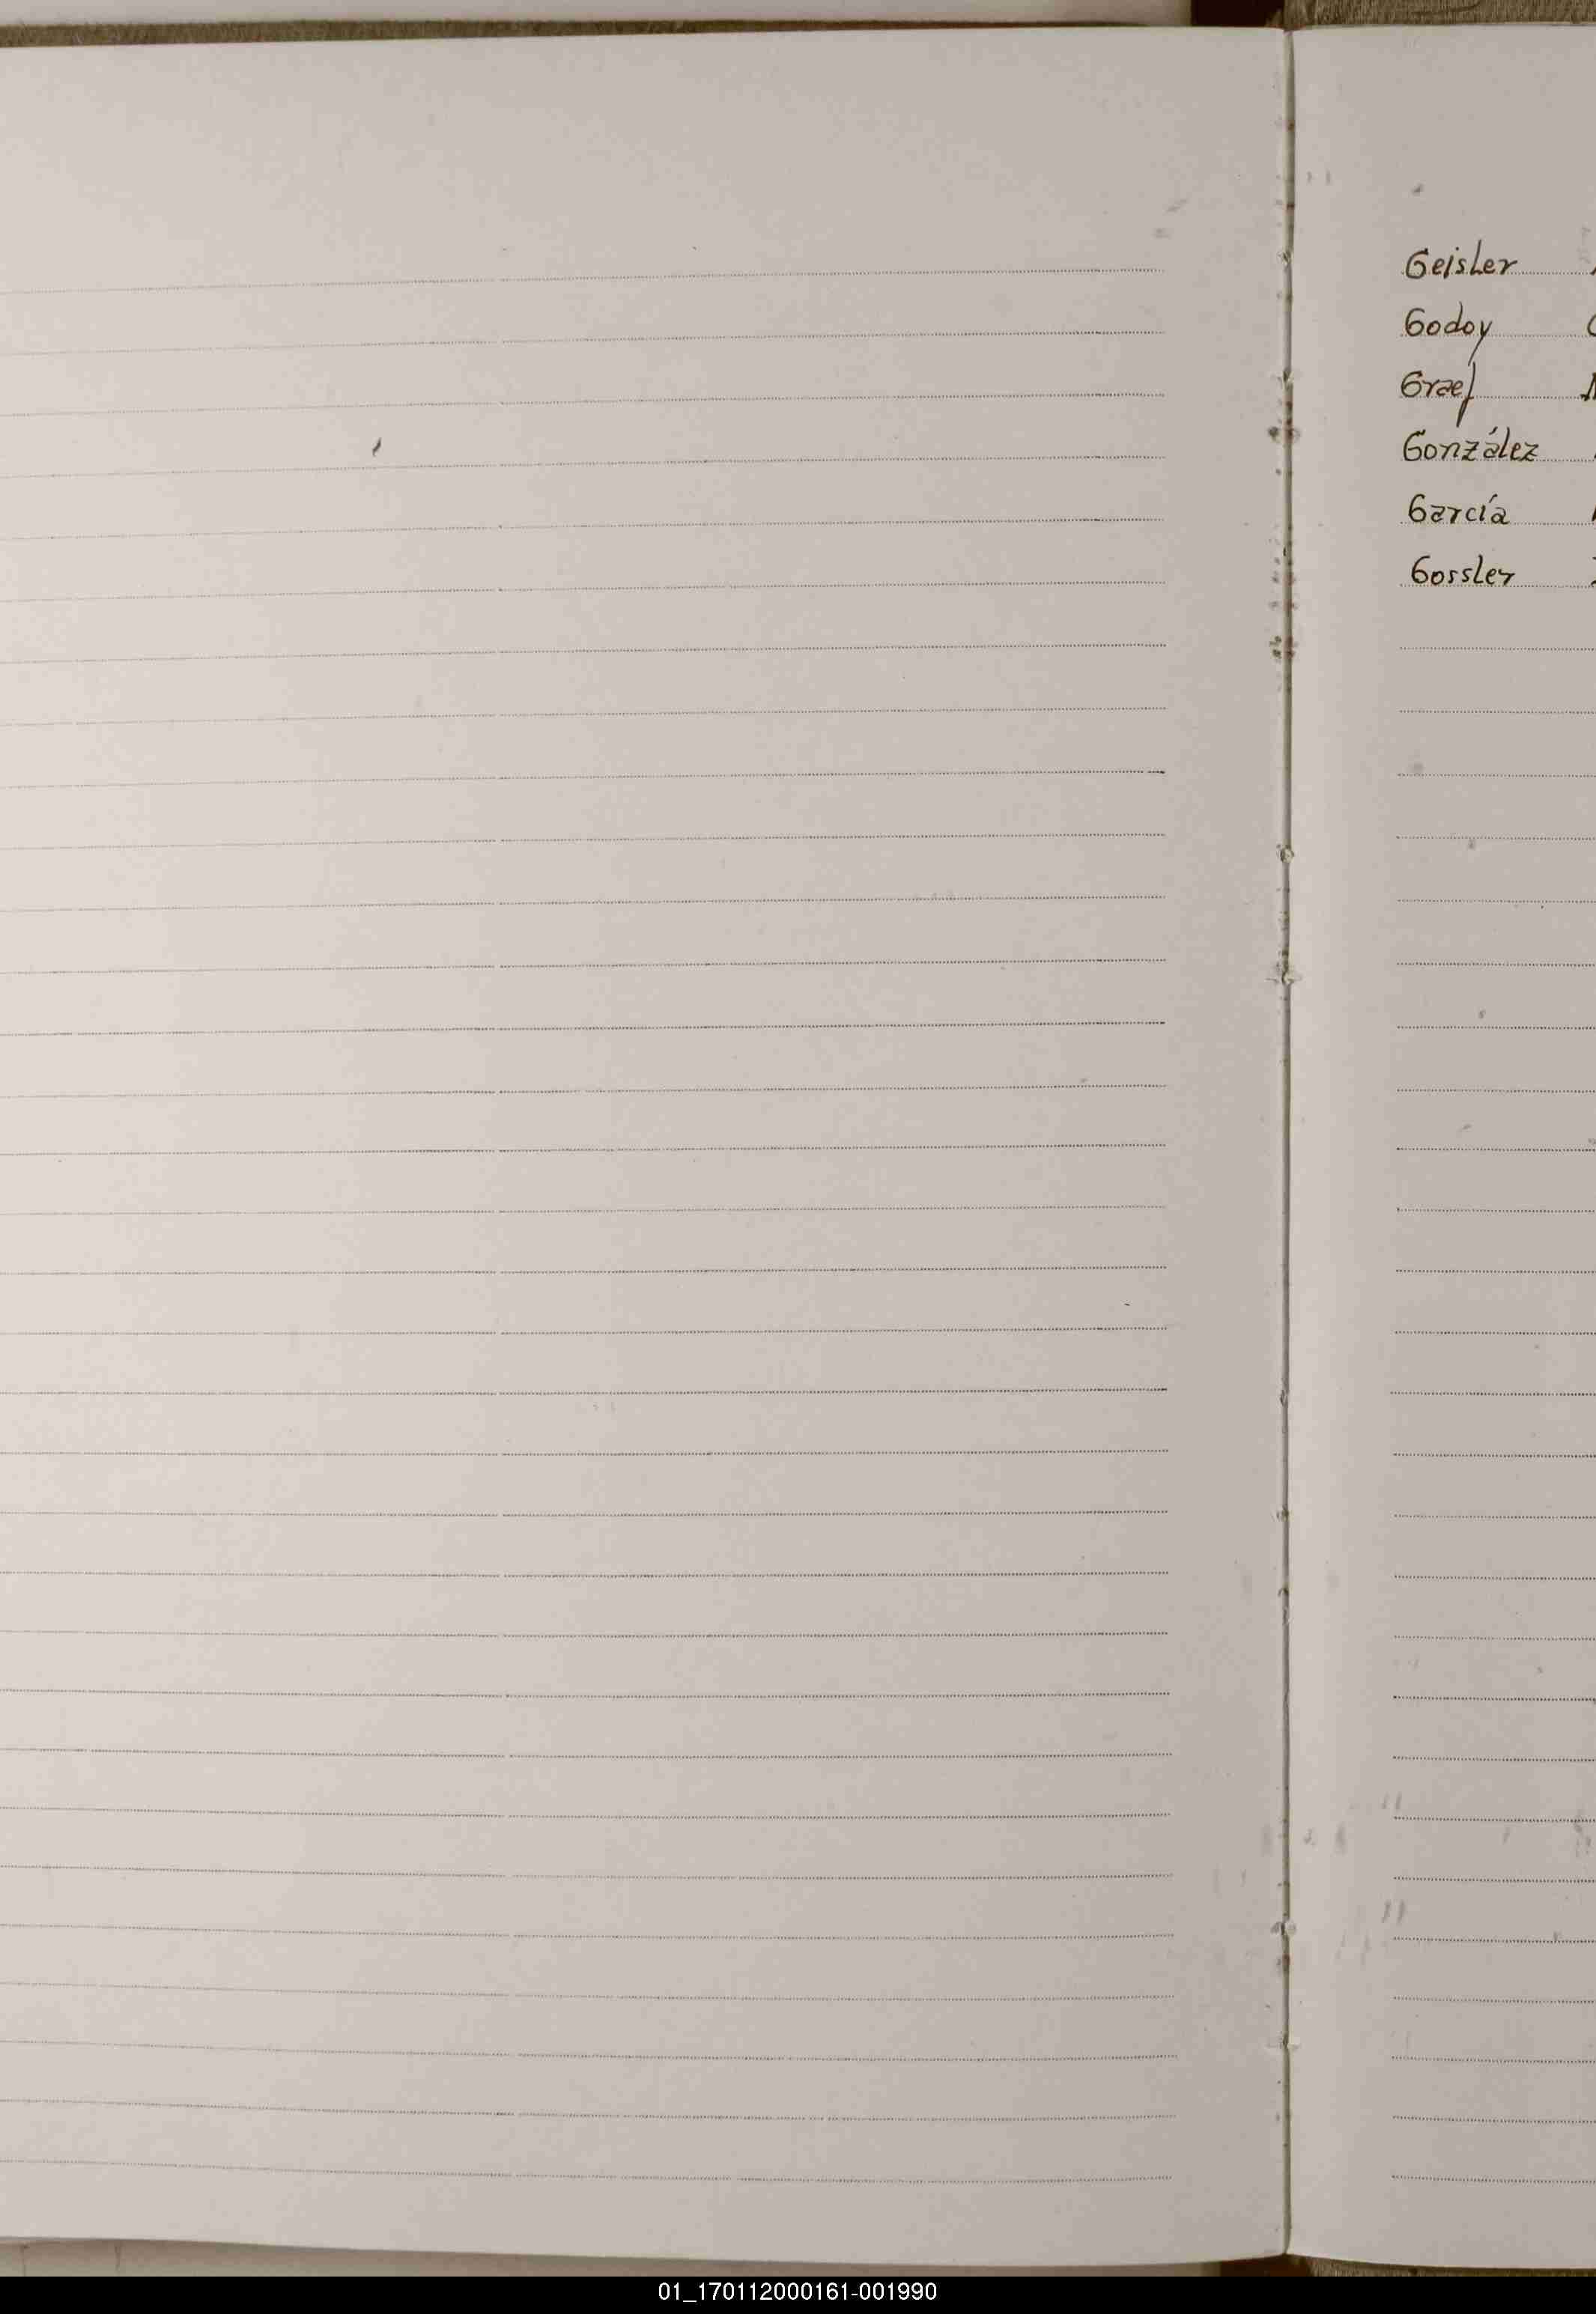 Geisler
Godoy
Graef
González
García
Gossler
01_170112000161-001990